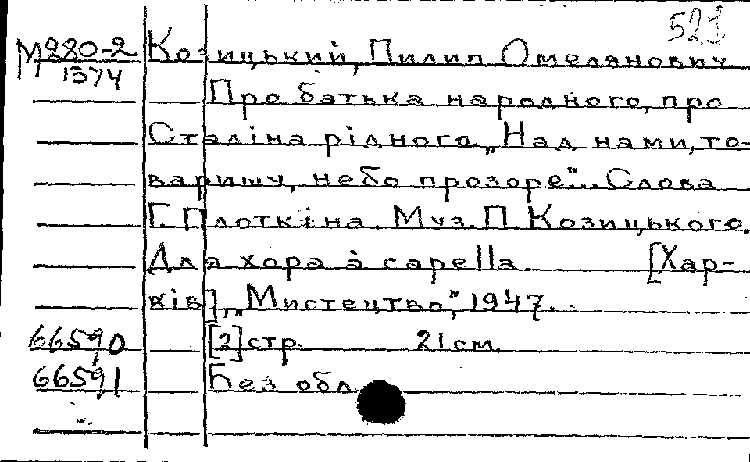 521
М220-2 Козицький, Пилип Омелянович
1374
Про батька народного, про
Сталіна рідного. „Над нами, то-
варишу, небо прозоре"... Слова
Г. Плоткіна. Муз. П. Козицького.
Для хора à capella. [Хар-
ків], „Мистецтво", 1947.
66590 [2] стр. 21 см.
66591 Без обл.